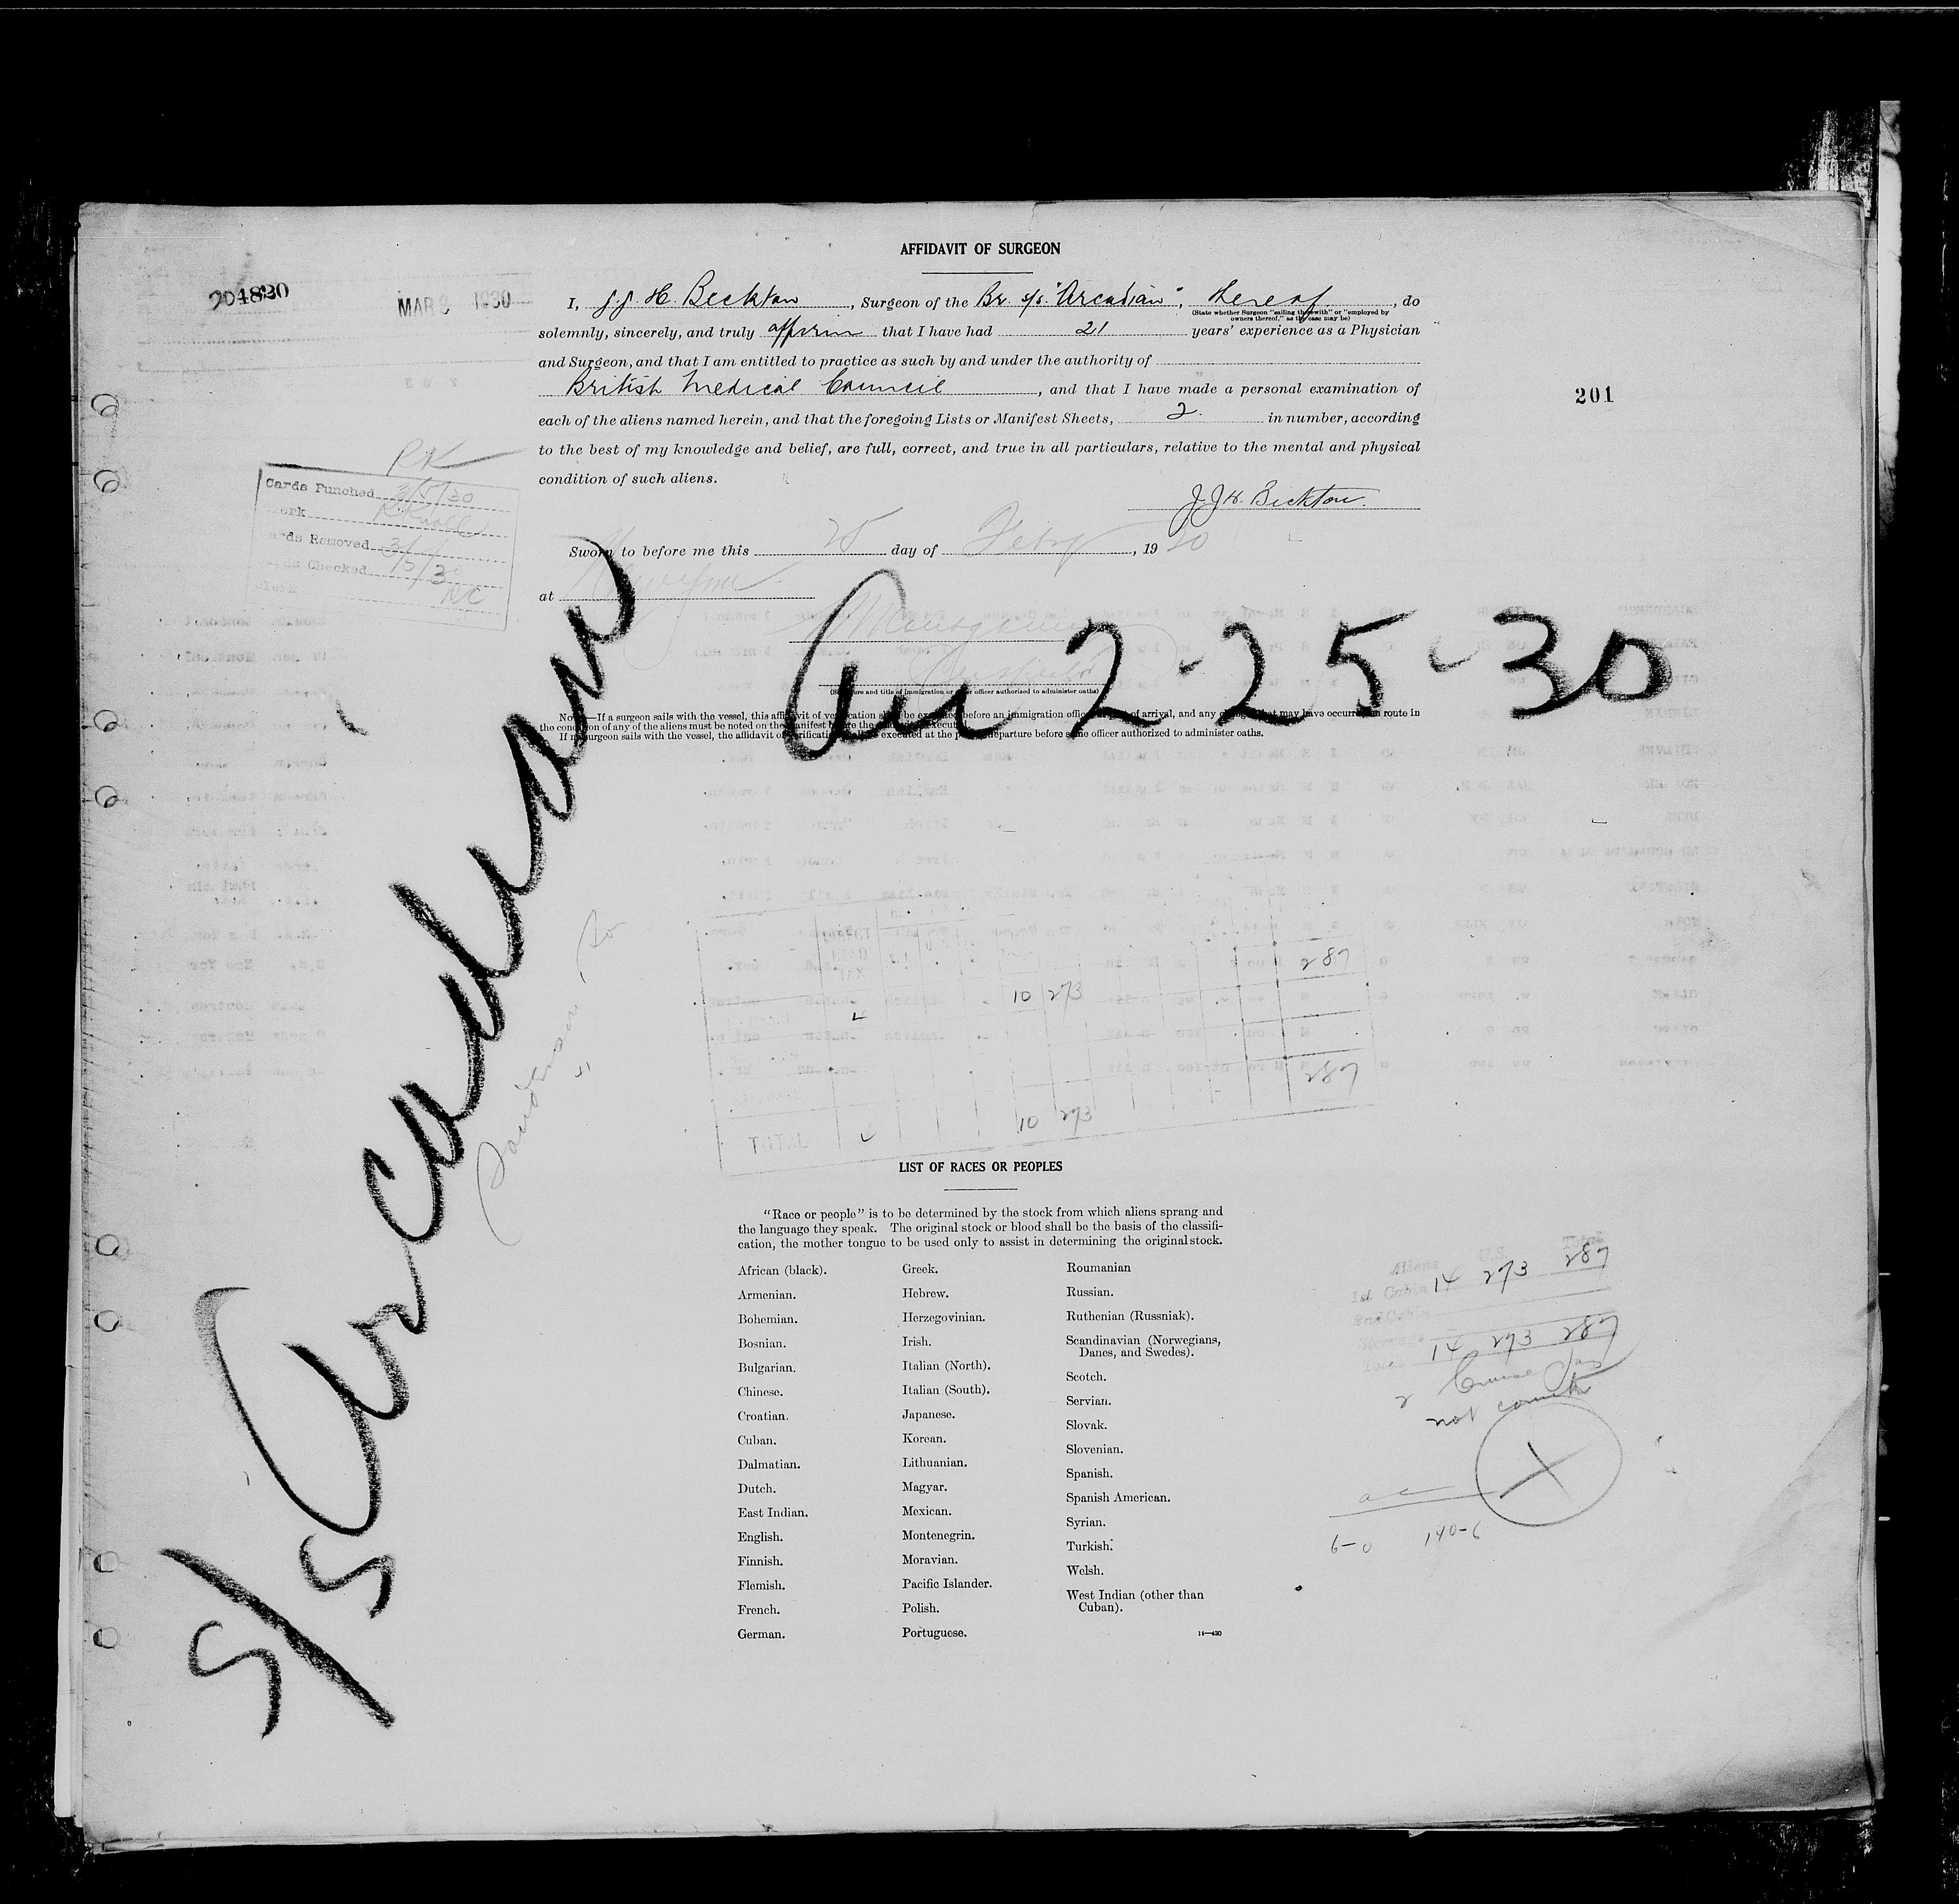 AFFIDAVIT OF SURGEON
204820
MAR 3 1930
I, J. J. H. Beckton, Surgeon of the Br. s/s. "Arcadian", thereof, do
(State whether Surgeon "sailing therewith" or "employed by
owners thereof," as the case may be)
solemnly, sincerely, and truly affirm that I have had 21 years' experience as a Physician
and Surgeon, and that I am entitled to practice as such by and under the authority of
British Medical Council, and that I have made a personal examination of
201
each of the aliens named herein, and that the foregoing Lists or Manifest Sheets, 2. in number, according
to the best of my knowledge and belief, are full, correct, and true in all particulars, relative to the mental and physical
condition of such aliens.
J. J. H. Beckton.
RK
Cards Punched 3/5/30
Cards Removed 3/5/3
Cards Checked
Clerk RC
Sworn to before me this 25 day of Feby, 1930
at New York
(Signature and title of immigration or other officer authorized to administer oaths)
Arr 2-25-30
NOTE.—If a surgeon sails with the vessel, this affidavit of verification shall be executed before an immigration officer of arrival, and any changes that may have occurred en route in
the condition of any of the aliens must be noted on the manifest before the affidavit is executed.
If no surgeon sails with the vessel, the affidavit of verification shall be executed at the port of departure before some officer authorized to administer oaths.
S/S Arcadian
Sanderson & So
287
10 273
4
287
10 273
4
LIST OF RACES OR PEOPLES
"Race or people" is to be determined by the stock from which aliens sprang and
the language they speak. The original stock or blood shall be the basis of the classifi-
cation, the mother tongue to be used only to assist in determining the original stock.
African (black).
Armenian.
Bohemian.
Bosnian.
Bulgarian.
Chinese.
Croatian.
Cuban.
Dalmatian.
Dutch.
East Indian.
English.
Finnish.
Flemish.
French.
German.
Greek.
Hebrew.
Herzegovinian.
Irish.
Italian (North).
Italian (South).
Japanese.
Korean.
Lithuanian.
Magyar.
Mexican.
Montenegrin.
Moravian.
Pacific Islander.
Polish.
Portuguese.
Roumanian
Russian.
Ruthenian (Russniak).
Scandinavian (Norwegians,
Danes, and Swedes).
Scotch.
Servian.
Slovak.
Slovenian.
Spanish.
Spanish American.
Syrian.
Turkish.
Welsh.
West Indian (other than
Cuban).
14—430
Aliens U.S. Total
1st Cabin 14 273 287
2nd Cabin
Steerage
Total 14 273 287
2 Cruise Pas
not counted
6-0 140-6